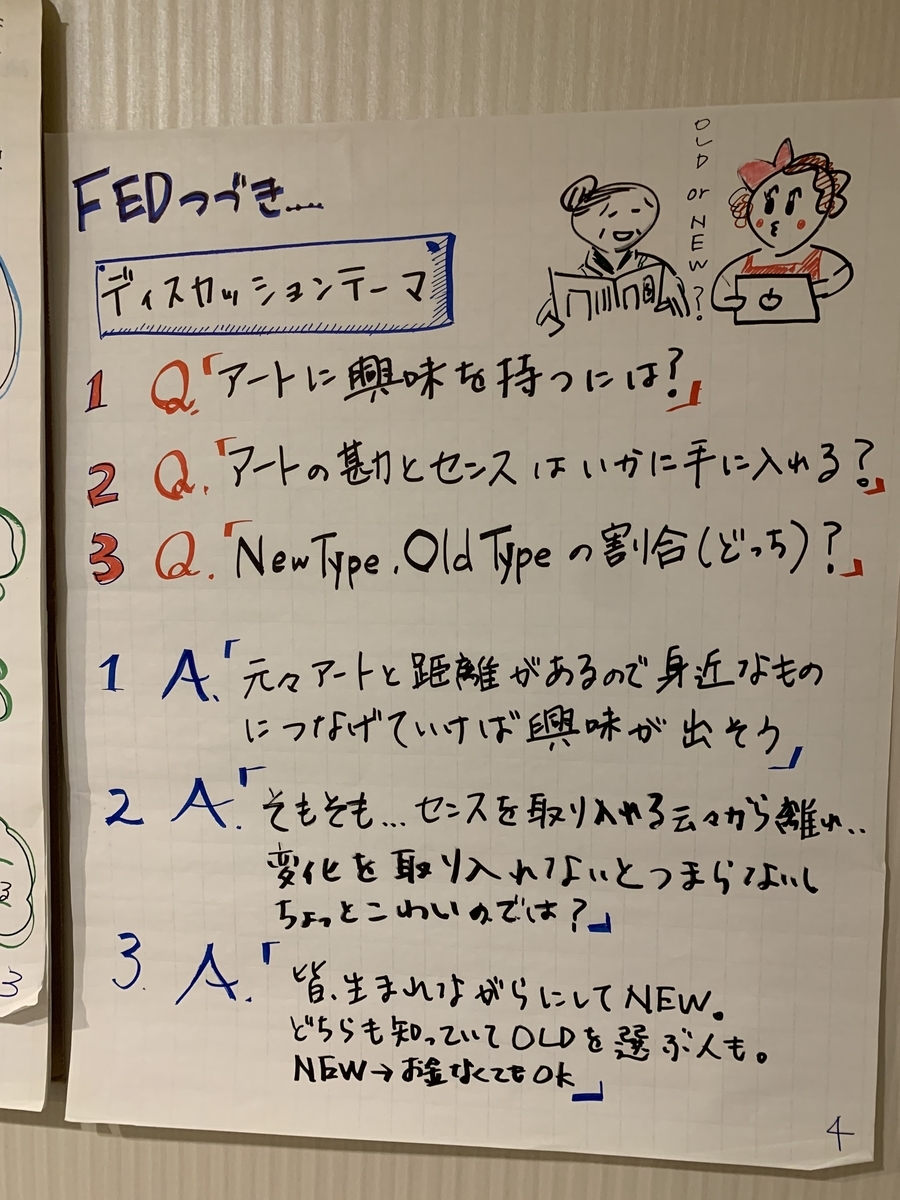 FEDつづき....
OLD or NEW?
ディスカッションテーマ
1 Q.「アートに興味を持つには?」
2 Q.「アートの勘とセンスはいかに手に入れる?」
3 Q.「NewType.OldTypeの割合(どっち)?」
1 A.「元々アートと距離があるので身近なもの
につなげていけば興味が出そう」
2 A.「そもそも...センスを取り入れる云々から離れ..
変化を取り入れないとつまらないし
ちょっとこわいのでは?」
3. A.「皆、生まれながらにしてNEW。
どちらも知っていてOLDを選ぶ人も。
NEW→お金なくてもOK」
4
3